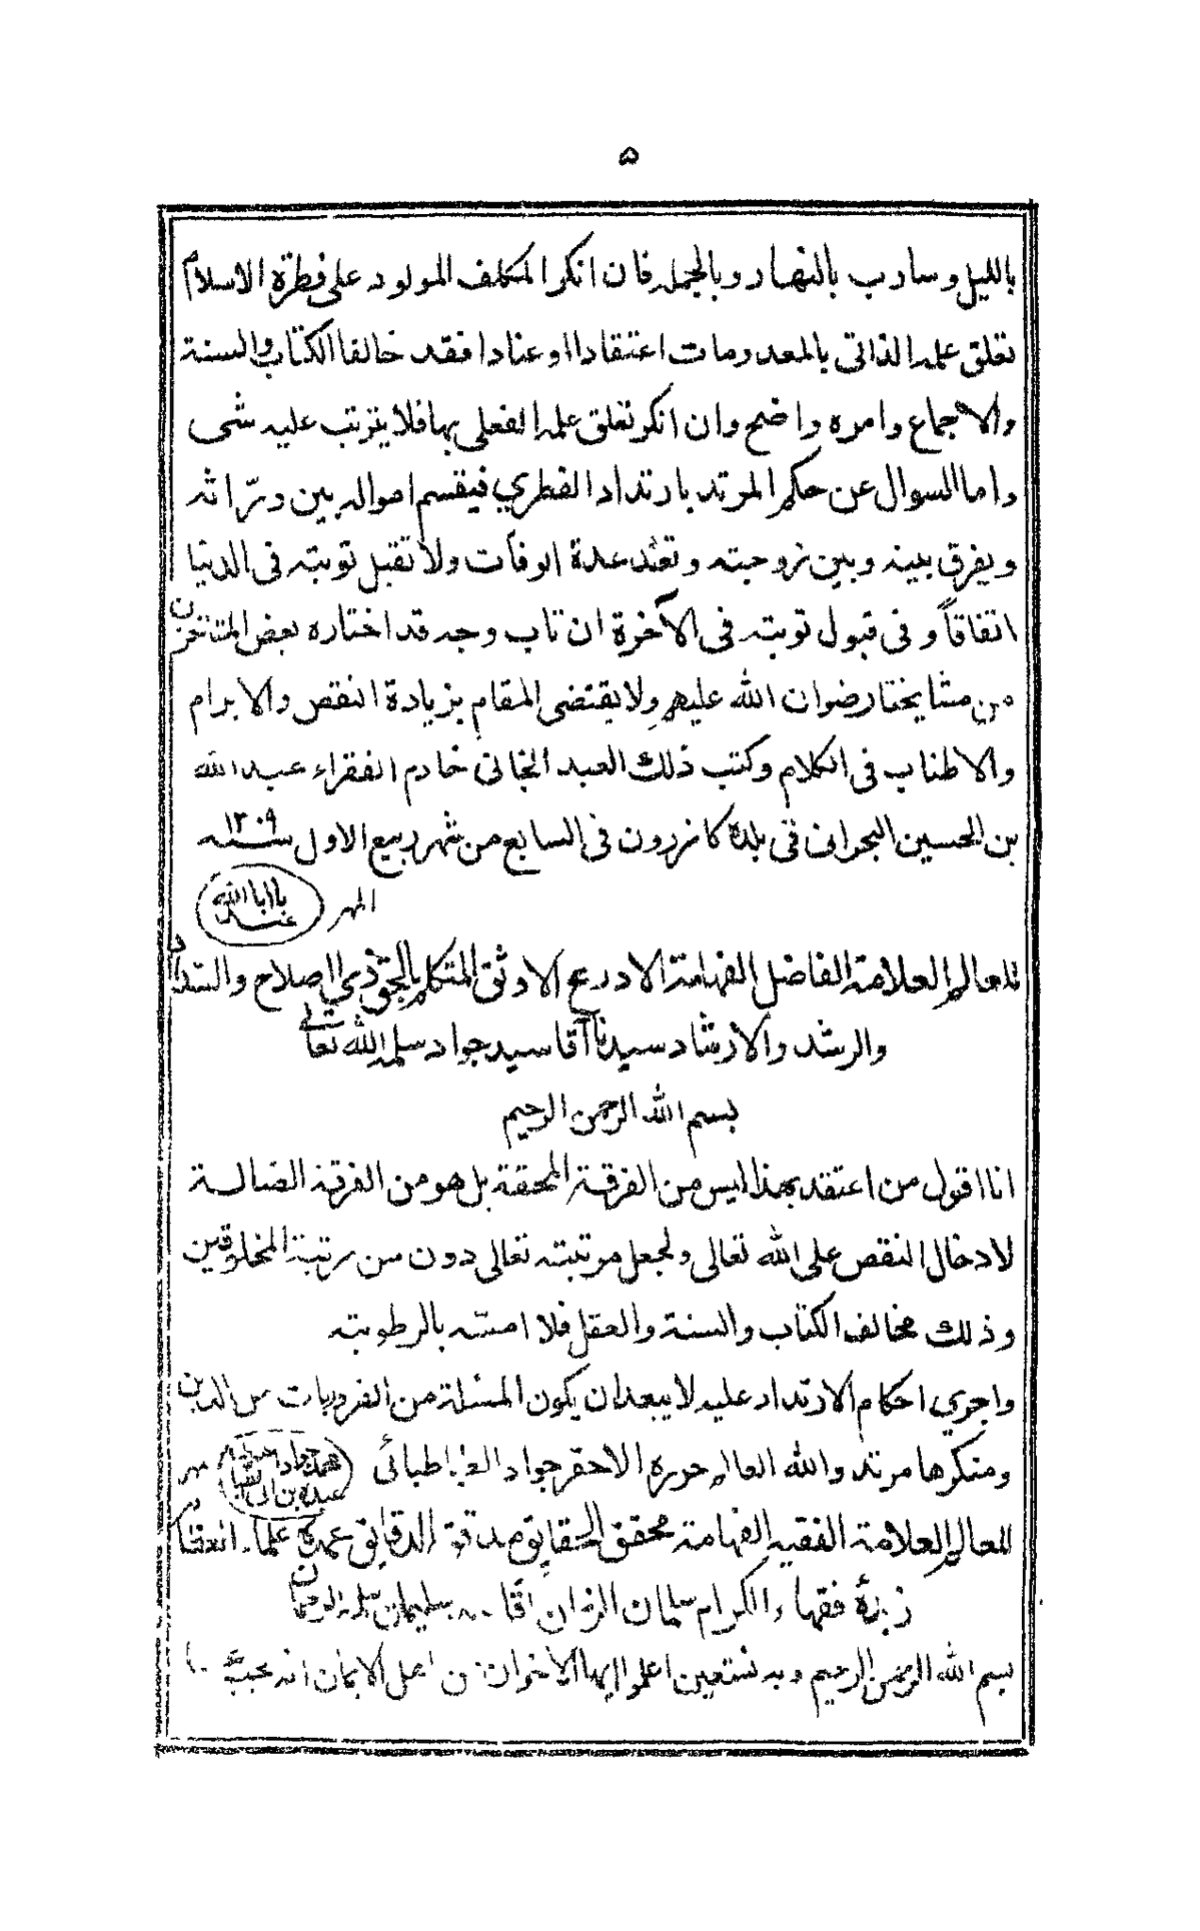 ۵
بالليل وسارب بالنهار وبالجملة فان انكر المكلف المولود على فطرة الاسلام
تعلق علمه الذاتى بالمعدومات اعتقادا او عنادا فقد خالفا الكتاب والسنة
والاجماع وامره واضح وان انكر تعلق علمه الفعلى بها فلا يترتب عليه شى
واما السوال عن حكم المرتد بارتداد الفطري فيقسم امواله بين ورّاثه
ويفرق بينه وبين زوجته وتعتد عدة الوفات ولا تقبل توبته فى الدنيا
اتفاقاً وفى قبول توبته فى الآخرة ان تاب وجه قد اختاره بعض المتاخرين
من مشايخنا رضوان الله عليهم ولا يقتضى المقام بزيادة النقص والابرام
والاطناب فى الكلام وكتب ذلك العبد الجانى خادم الفقراء عبد الله
بن الحسين البحرانى فى بلدة كازرون فى السابع من شهر ربيع الاول سنه ١٣٠٩
المهر يا ابا الله عبد
للعالم العلامة الفاضل الفهامة الاورع الاوثق المتكلم بالحق ذي الصلاح والسداد
والرشد والارشاد سيدنا آقا سيد جواد سلمه الله تعالى
بسم الله الرحمن الرحيم
انا اقول من اعتقد بهذا ليس من الفرقة المحقة بل هو من الفرقة الضالة
لادخال النقص على الله تعالى ولجعل مرتبته تعالى دون من رتبة المخلوقين
وذلك مخالف الكتاب والسنة والعقل فلا امسّه بالرطوبته
واجري احكام الارتداد عليه لا يبعد ان يكون المسئلة من الضروريات من الدين
ومنكرها مرتد والله العالم حرره الاحقر جواد الطباطبائى مهر
للعالم العلامة الفقيه الفهامة محقق الحقايق مدقق الدقايق عمدة علماء
زبدة فقهاء الكرام سلمان الزمان آقا سليمان سلمه الرحمان
بسم الله الرحمن الرحيم وبه نستعين اعلموا ايها الاخوان من اهل الايمان انه يجب